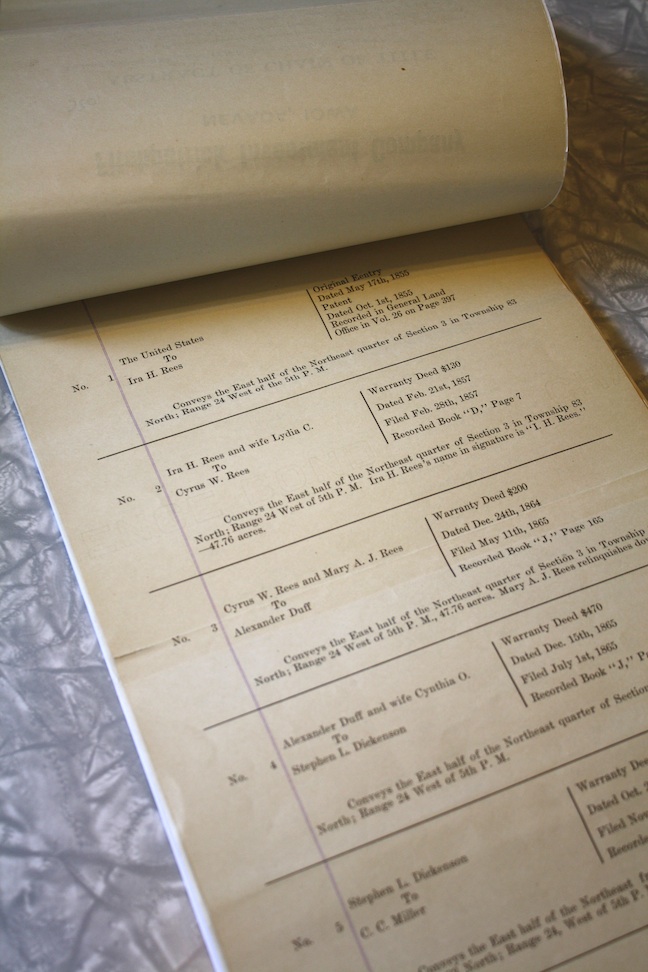 ABSTRACT OF CHAIN OF TITLE
NEVADA, IOWA
Original Eentry
Dated May 17th, 1855
Patent
Dated Oct. 1st, 1855
Recorded in General Land
Office in Vol. 26 on Page 397
The United States
To
No. 1 Ira H. Rees
Conveys the East half of the Northeast quarter of Section 3 in Township 83
North; Range 24 West of the 5th P. M.
Warranty Deed $130
Dated Feb. 21st, 1857
Filed Feb. 28th, 1857
Recorded Book "D," Page 7
Ira H. Rees and wife Lydia C.
To
No. 2 Cyrus W. Rees
Conveys the East half of the Northeast quarter of Section 3 in Township 83
North; Range 24 West of 5th P. M. Ira H. Rees's name in signature is "I. H. Rees."
—47.76 acres.
Warranty Deed $200
Dated Dec. 24th, 1864
Filed May 11th, 1865
Recorded Book "J," Page 165
Cyrus W. Rees and Mary A. J. Rees
To
No. 3 Alexander Duff
Conveys the East half of the Northeast quarter of Section 3 in Township
North; Range 24 West of 5th P. M., 47.76 acres. Mary A. J. Rees relinquishes
Warranty Deed $470
Dated Dec. 15th, 1865
Filed July 1st, 1865
Recorded Book "J,"
Alexander Duff and wife Cynthia O.
To
No. 4 Stephen L. Dickenson
Conveys the East half of the Northeast quarter of Section
North; Range 24 West of 5th P. M.
Warranty
Dated Oct.
Filed
Stephen L. Dickenson
To
No. 5 C. C. Miller
Conveys the East half of the Northeast
North; Range 24, West of 5th P.